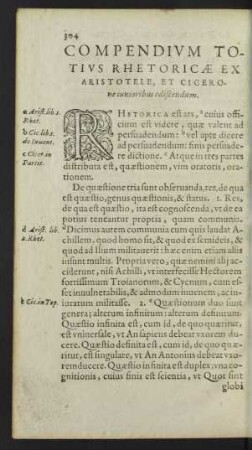 304
COMPENDIVM TO-
TIVS RHETORICÆ EX
ARISTOTELE, ET CICERO-
ne iunioribus ediscendum.
a Arist. lib. 1.
Rhet.
b Cic. lib. 1.
de Inuent.
c Cicer. in
Partit.
RHETORICA est ars, cuius offi-
cium est videre, quæ valeant ad
persuadendum: vel aptè dicere
ad persuadendum: finis persuade-
re dictione. Atque in tres partes
distributa est, quæstionem, vim oratoris, ora-
tionem.
De quæstione tria sunt obseruanda, res, de qua
est quæstio, genus quæstionis, & status. 1. Res,
de qua est quæstio, ita est cognoscenda, vt de ea
potius teneantur propria, quàm communia.
d Arist. lib.
2. Rhet.
Dicimus autem communia cum quis laudat A-
chillem, quod homo sit, & quod ex semideis, &
quod ad Ilium militauerit: hæc enim etiam aliis
insunt multis. Propria verò, quæ nemini alij ac-
ciderunt, nisi Achilli, vt interfecisse Hectorem
fortissimum Troianorum, & Cycnum, cum es-
set inuulnerabilis, & admodum iuuenem, ac in-
iuratum militasse.
e Cic. in Top.
2. Quæstionum duo sunt
genera; alterum infinitum: alterum definitum.
Quæstio infinita est, cum id, de quo quæritur,
est vniuersale, vt An sapiens debeat vxorem du-
cere. Quæstio definita est, cum id, de quo quæ-
ritur, est singulare, vt An Antonius debeat vxo-
rem ducere. Quæstio infinita est duplex, vna co-
gnitionis, cuius finis est scientia, vt Quot sint
globi